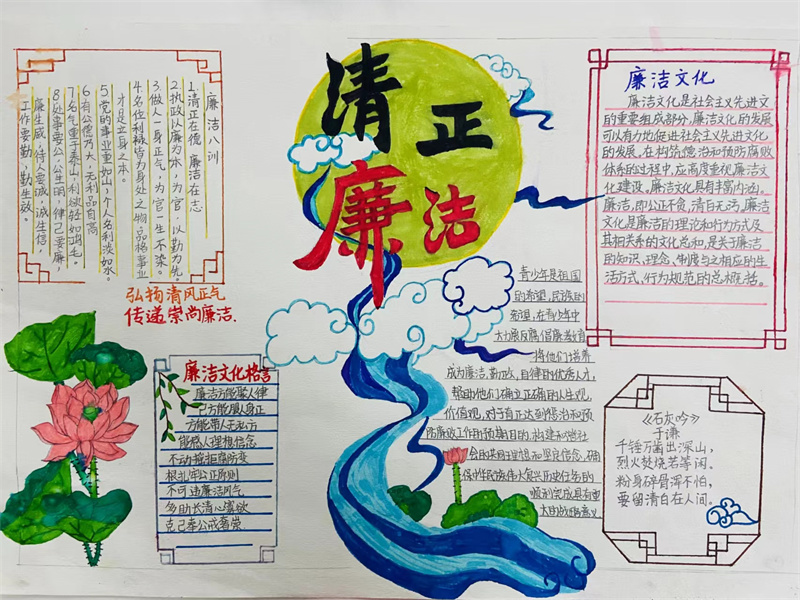 清正
廉洁
廉洁八训
1.清正在德,廉洁在志
2.执政以廉为本,为官,以勤为先。
3.做人一身正气,为官一生不染。
4.名位利禄皆为身处之物品格事业
才是立身之本。
5.党的事业重如山,个人名利淡如水。
6.有公德乃大,无利品自高
7.名气重于泰山,利欲轻如鸿毛。
8.处事要公,公生明,律己要廉,
廉生威,待人要诚,诚生信,
工作要勤,勤生效。
弘扬清风正气
传递崇尚廉洁.
廉洁文化格言
廉洁方能聚人律
己方能服人身正
方能带人无私方
能感人理想信念
不动摇拒腐防变
根扎牢公正原则
不可违廉洁风气
多助长清心寡欲
克己奉公戒奢崇
廉洁文化
廉洁文化是社会主义先进文
的重要组成部分,廉洁文化的发展
可以有力地促进社会主义先进文化
的发展。在构筑德治和预防腐败
体系的过程中,应高度重视廉洁文
化建设。廉洁文化具有丰富内涵。
廉洁,即公正不贪,清白无污,廉洁文
化是廉洁的理论和行为方式及
其相关系的文化总和,是关于廉洁
的知识、理念、制度与之相应的生
活方式、行为规范的总概括。
青少年是祖国
的希望,民族的
希望,在青少年中
大力展反腐,倡廉教育
将他们培养
成为廉洁,勤政,自律的优秀人才,
帮助他们确立正确的人生观,
价值观,对于真正达到惩治和预
防腐败工作的预期目的,构建和谐社
会的共同理想和坚定信念,确
保中华民族伟大复兴历史任务的
顺利完成具有重
大助战略意义
《石灰吟》
于谦
千锤万凿出深山,
烈火焚烧若等闲。
粉身碎骨浑不怕,
要留清白在人间。